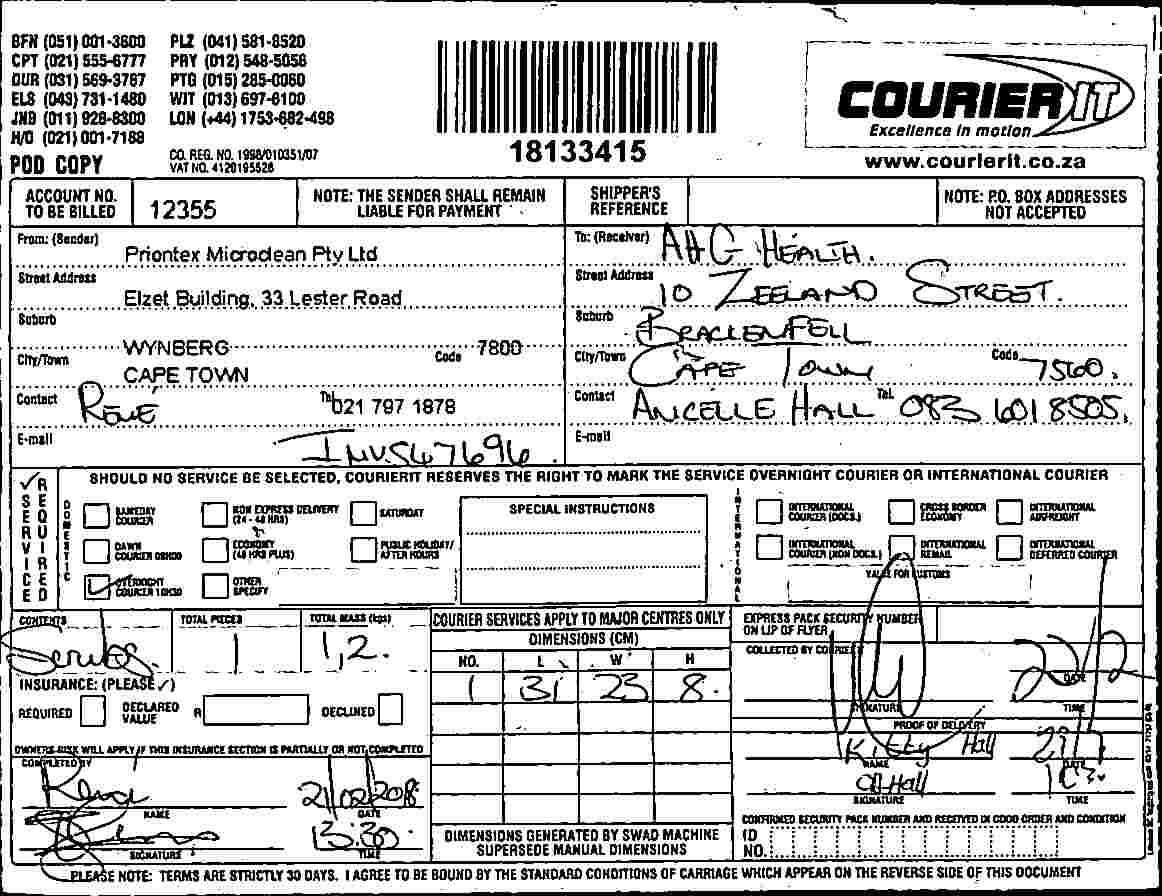 BFN (051) 001-3600 PLZ (041) 581-8520
CPT (021) 555-6777 PRY (012) 548-5058
DUR (031) 569-3767 PTG (015) 285-0060
ELS (043) 731-1480 WIT (013) 697-6100
JNB (011) 928-8300 LON (+44) 1753-682-498
H/O (021) 001-7188
POD COPY
CO. REG. NO. 1998/010351/07
VAT NO. 4120195528
18133415
COURIER IT
Excellence in motion
www.courierit.co.za
ACCOUNT NO. TO BE BILLED 12355
NOTE: THE SENDER SHALL REMAIN LIABLE FOR PAYMENT
SHIPPER'S REFERENCE
NOTE: P.O. BOX ADDRESSES NOT ACCEPTED
From: (Sender) Priontex Microclean Pty Ltd
Street Address Elzet Building, 33 Lester Road
Suburb WYNBERG
City/Town CAPE TOWN Code 7800
Contact RENÉ Tel 021 797 1878
E-mail INV547696
To: (Receiver) AHG HEALTH.
Street Address 10 ZEELAND STREET.
Suburb BRACKENFELL
City/Town CAPE TOWN Code 7560.
Contact ANCELLE HALL Tel. 083 601 8505.
E-mail
SHOULD NO SERVICE BE SELECTED, COURIERIT RESERVES THE RIGHT TO MARK THE SERVICE OVERNIGHT COURIER OR INTERNATIONAL COURIER
SERVICE REQUIRED
DOMESTIC
SAMEDAY COURIER
NON EXPRESS DELIVERY (24 - 48 HRS)
SATURDAY
DAWN COURIER 08H00
ECONOMY (48 HRS PLUS)
PUBLIC HOLIDAY/ AFTER HOURS
OVERNIGHT COURIER 10H30
OTHER SPECIFY
SPECIAL INSTRUCTIONS
INTERNATIONAL
INTERNATIONAL COURIER (DOCS.)
CROSS BORDER ECONOMY
INTERNATIONAL AIRFREIGHT
INTERNATIONAL COURIER (NON DOCS.)
INTERNATIONAL REMAIL
INTERNATIONAL DEFERRED COURIER
VALUE FOR CUSTOMS
CONTENTS
TOTAL PIECES 1
TOTAL MASS (kgs) 1,2.
INSURANCE: (PLEASE ✓)
REQUIRED
DECLARED VALUE R
DECLINED
OWNERS RISK WILL APPLY IF THIS INSURANCE SECTION IS PARTIALLY OR NOT COMPLETED
COMPLETED BY
NAME
21/02/2018 DATE
SIGNATURE
13:30 TIME
COURIER SERVICES APPLY TO MAJOR CENTRES ONLY
DIMENSIONS (CM)
NO. L W H
1 31 23 8.
DIMENSIONS GENERATED BY SWAD MACHINE SUPERSEDE MANUAL DIMENSIONS
EXPRESS PACK SECURITY NUMBER ON LIP OF FLYER
COLLECTED BY COURIER
SIGNATURE
22/2 DATE
TIME
PROOF OF DELIVERY
Kitty Hall NAME
DATE
Hall SIGNATURE
TIME
CONFIRMED SECURITY PACK NUMBER AND RECEIVED IN GOOD ORDER AND CONDITION
ID NO.
PLEASE NOTE: TERMS ARE STRICTLY 30 DAYS. I AGREE TO BE BOUND BY THE STANDARD CONDITIONS OF CARRIAGE WHICH APPEAR ON THE REVERSE SIDE OF THIS DOCUMENT